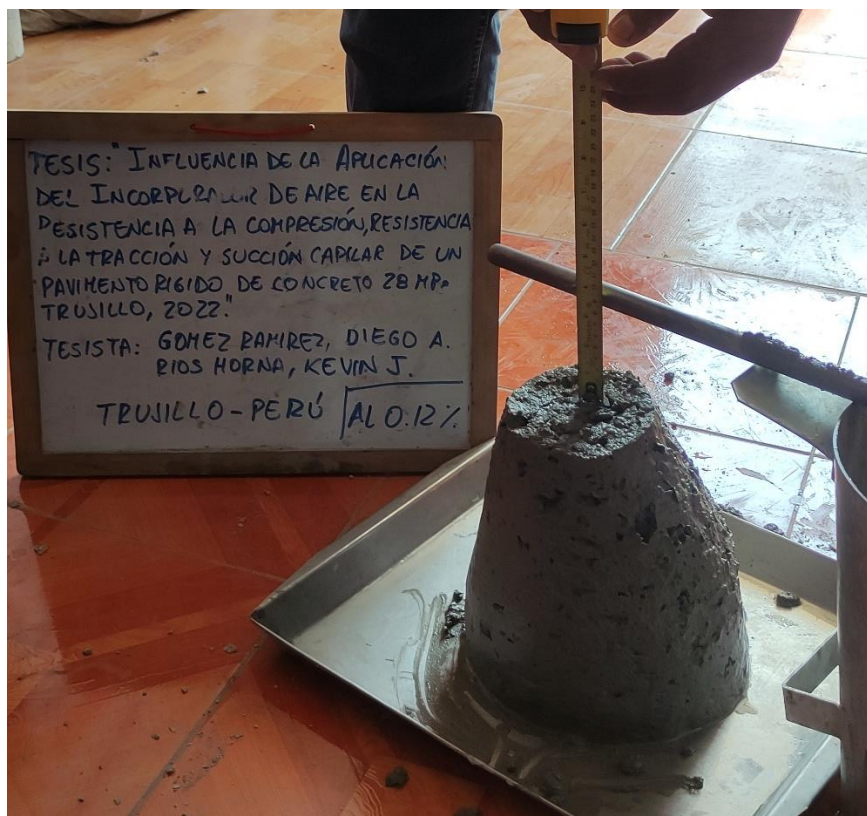 TESIS: "INFLUENCIA DE LA APLICACIÓN
DEL INCORPORADOR DE AIRE EN LA
RESISTENCIA A LA COMPRESIÓN, RESISTENCIA
A LA TRACCIÓN Y SUCCIÓN CAPILAR DE UN
PAVIMENTO RIGIDO DE CONCRETO 28 MPa
TRUJILLO, 2022."
TESISTA: GOMEZ RAMIREZ, DIEGO A.
RIOS HORNA, KEVIN J.
TRUJILLO - PERÚ AL 0.12%